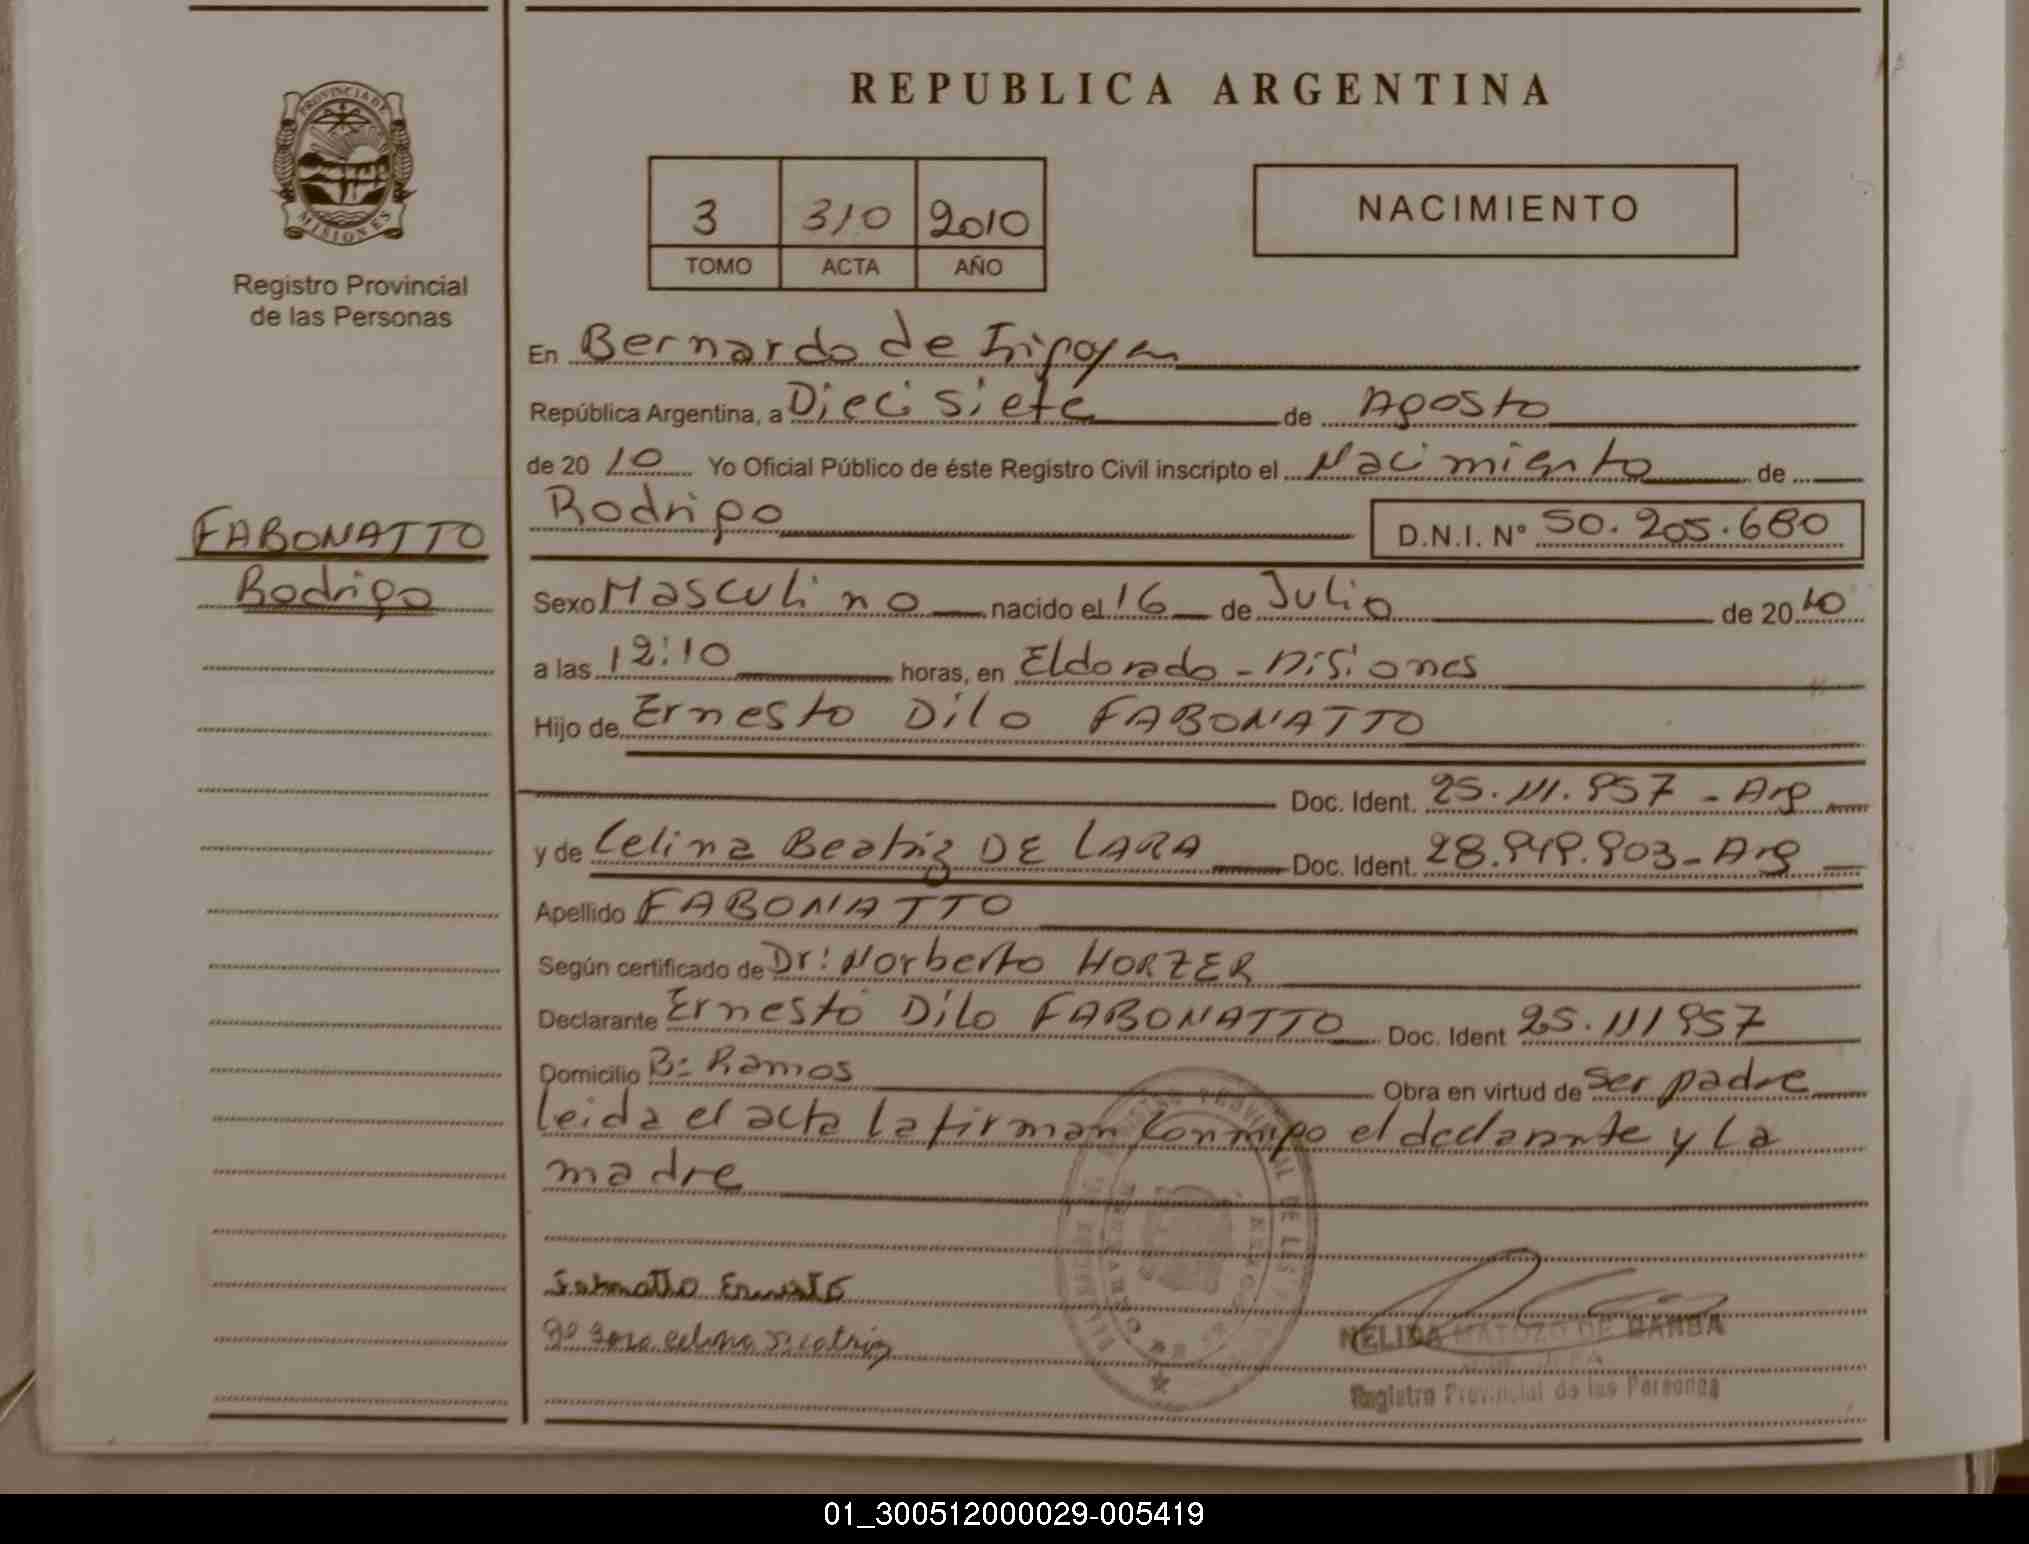 REPUBLICA ARGENTINA
PROVINCIA DE
MISIONES
Registro Provincial
de las Personas
3 310 2010
TOMO ACTA AÑO
NACIMIENTO
En Bernardo de Irigoyen
República Argentina, a Dieci siete de Agosto
de 20 10 Yo Oficial Público de éste Registro Civil inscripto el Nacimiento de
FABONATTO
Rodrigo
Rodrigo D.N.I. Nº 50.205.680
Sexo Masculino nacido el 16 de Julio de 20 10
a las 12:10 horas, en Eldorado - Misiones
Hijo de Ernesto Dilo FABONATTO
Doc. Ident. 25.111.957 - Arg
y de Celina Beatriz DE LARA Doc. Ident. 28.949.903 - Arg
Apellido FABONATTO
Según certificado de Dr: Norberto HORZER
Declarante Ernesto Dilo FABONATTO Doc. Ident 25.111957
Domicilio B= Ramos Obra en virtud de ser padre
leida el acta la firman conmigo el declarante y la
madre
Fabonatto Ernesto
NELIDA MATOZO DE BARBA
Registro Provincial de las Personas
01_300512000029-005419